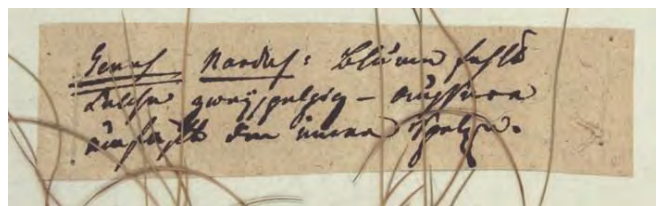 Genus Nardus: Blume fehlt
Kelche zweyspelzig – äussere
umfaßt den innern Spelzen.